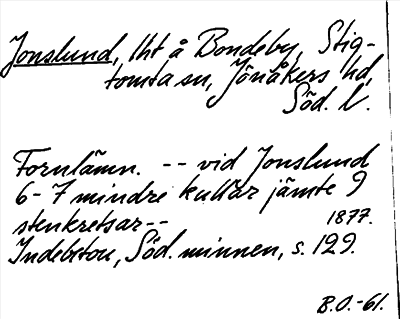 Jonslund, lht å Bondeby, Stig-
tomta sn, Jönåkers hd,
Söd. l.
Fornlämn. -- vid Jonslund
6-7 mindre kullar jämte 9
stenkretsar--
1877.
Indebetou, Söd. minnen, s. 129.
B.O.-61.